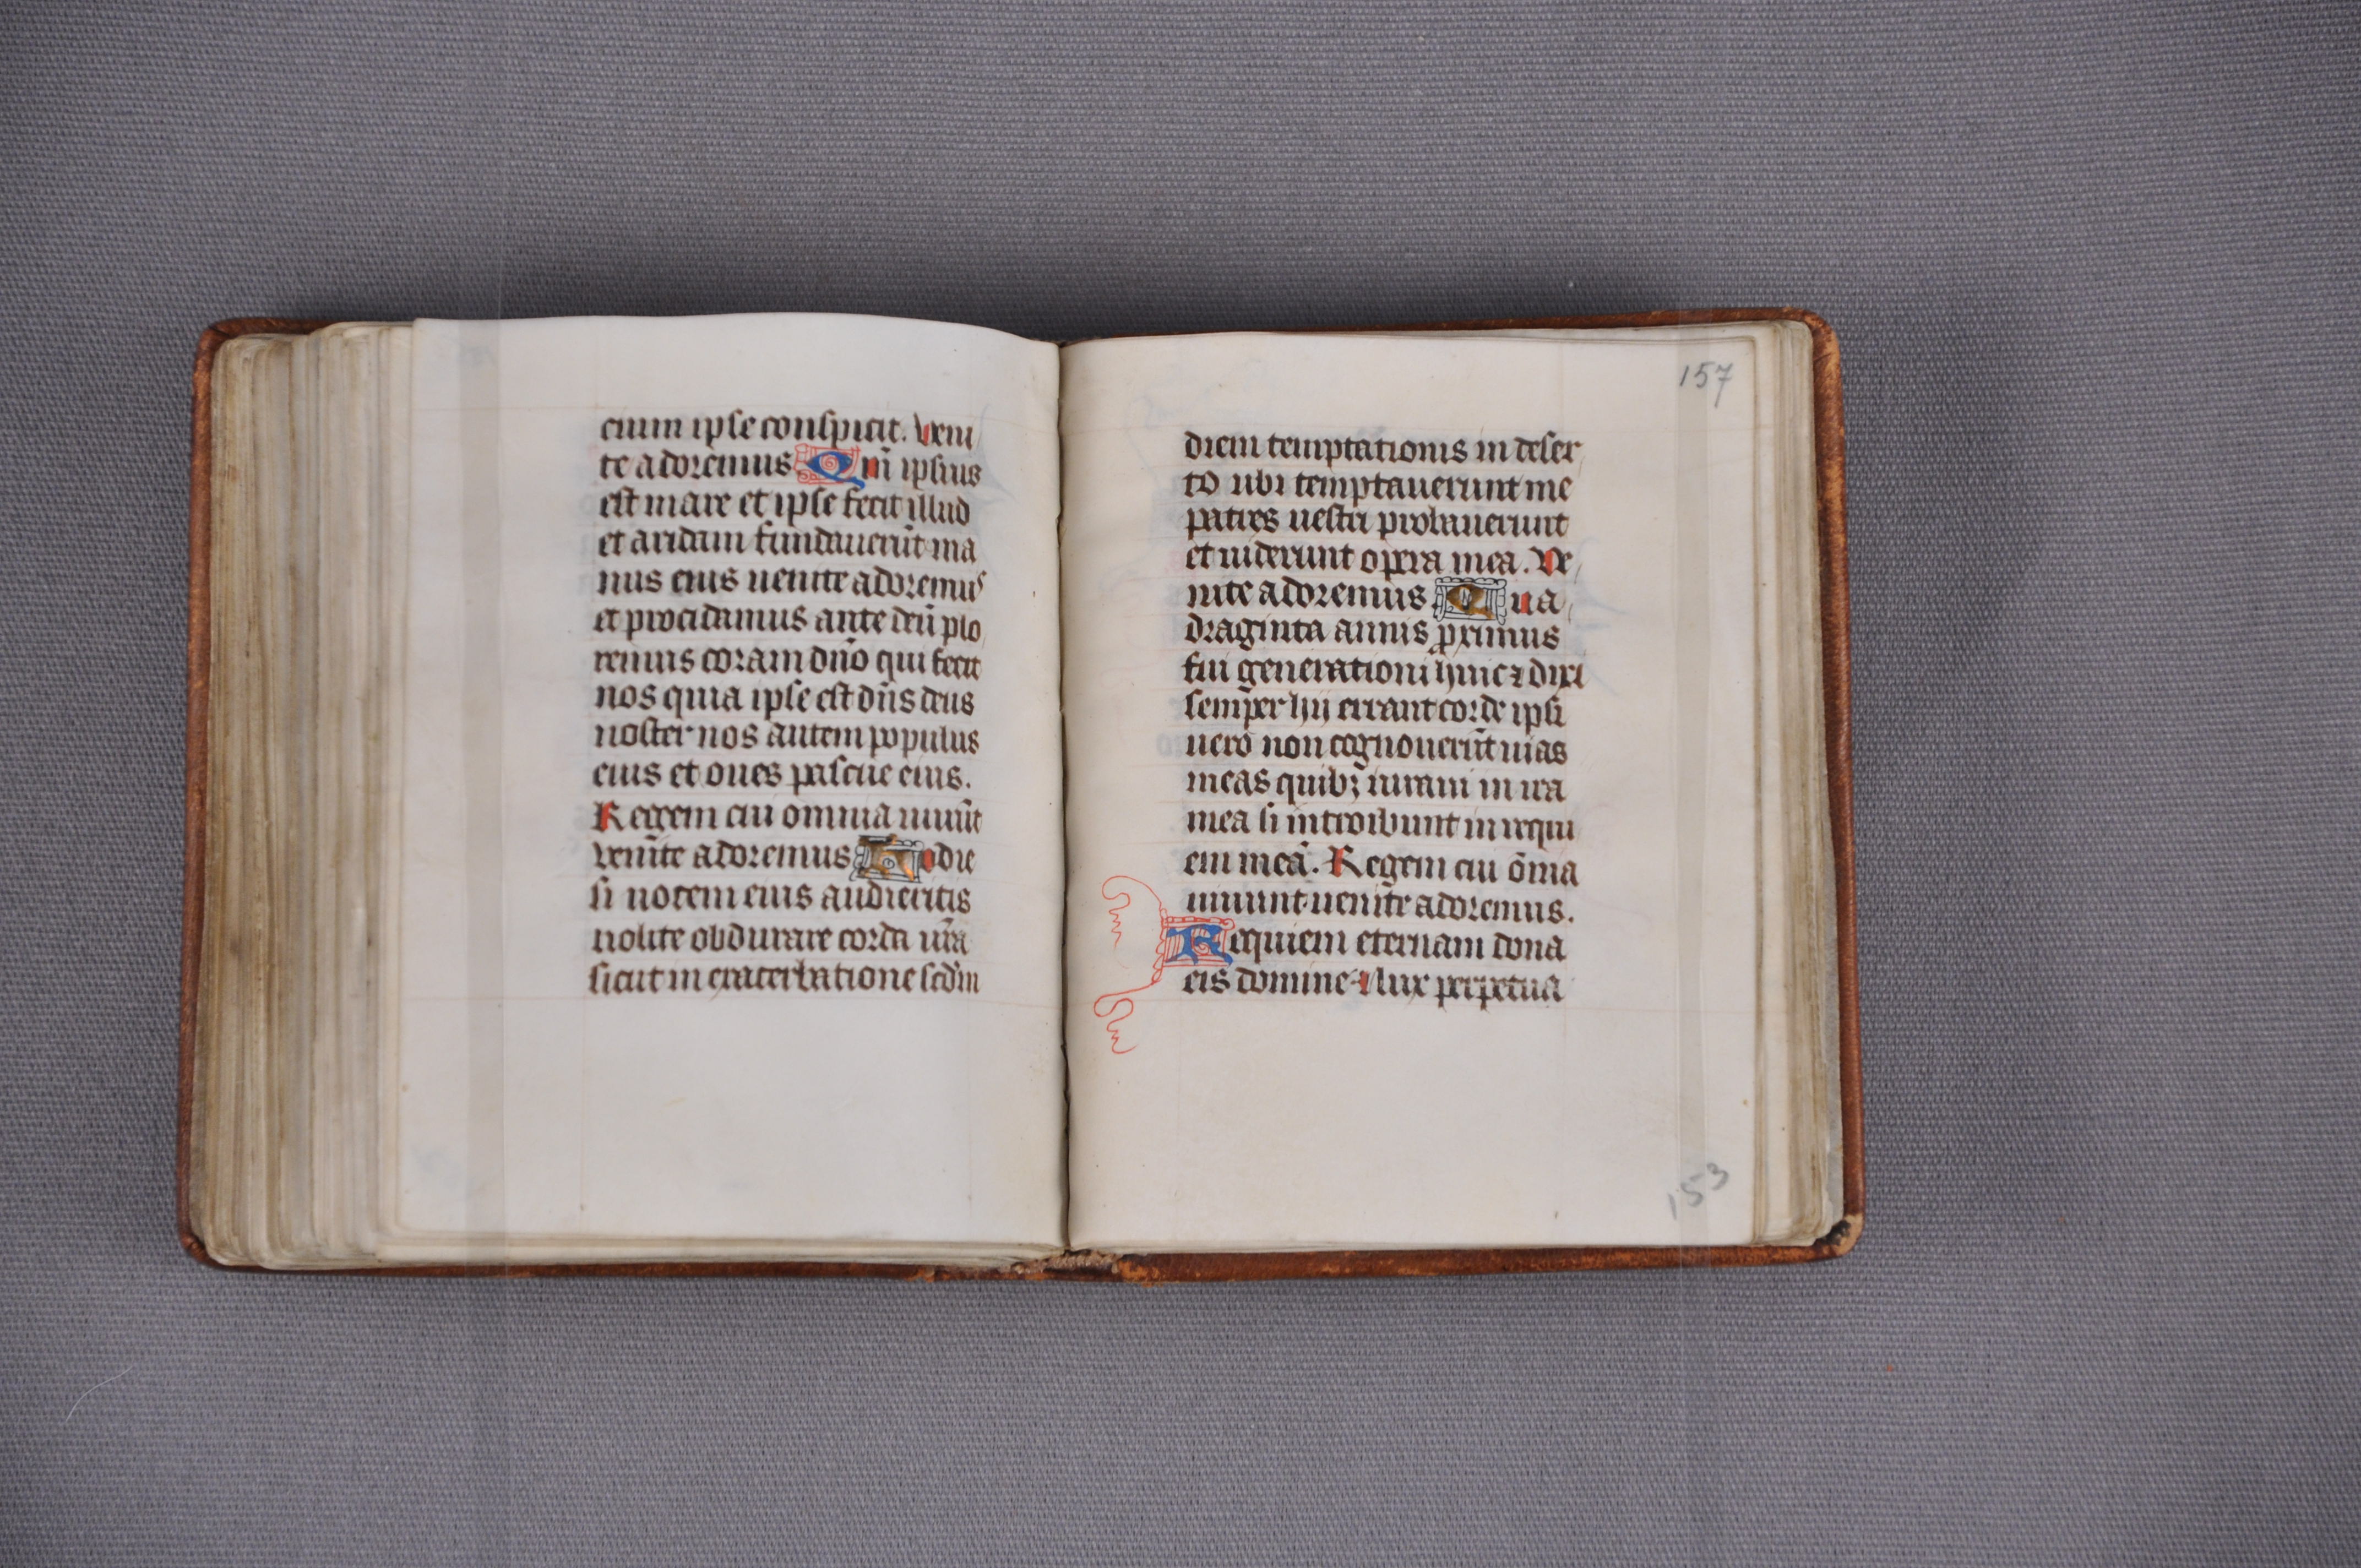 cium ipse conspicit. Veni
te adoremus Qm̄ ipsius
est mare et ipse fecit illud
et aridam fundauerūt ma
nus eius uenite adoremus
et procidamus ante deū plo
remus coram dn̄o qui fecit
nos quia ipse est dn̄s deus
noster nos autem populus
eius et oues pascue eius.
Regem cui omnia uiuūt
Venīte adoremus Hodie
si uocem eius audieritis
nolite obdurare corda ur̄a
sicut in exacerbatione scdm̄
157
diem temptationis in deser
to ubi temptauerunt me
patres uestri probauerunt
et uiderunt opera mea. Ve
nite adoremus Qua
draginta annis ꝓximus
fui generationi huic ⁊ dixi
semper hii errant corde ipsi
uero non cognouerūt uias
meas quibꝫ iuraui in ira
mea si introibunt in requi
em meā. Regem cui ōmia
uiuunt uenite adoremus.
Requiem eternam dona
eis domine lux perpetua
153